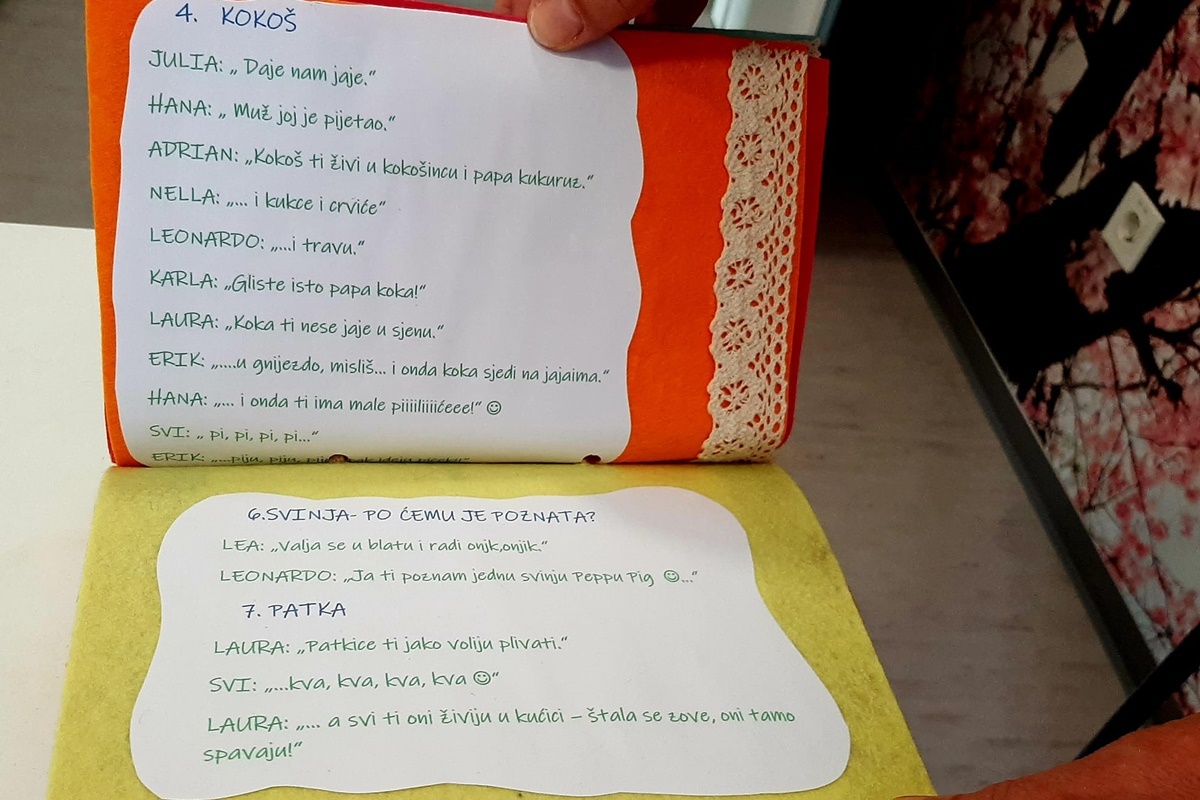 4. KOKOŠ
JULIA: „ Daje nam jaje.“
HANA: „ Muž joj je pijetao.“
ADRIAN: „Kokoš ti živi u kokošincu i papa kukuruz.“
NELLA: „... i kukce i crviće“
LEONARDO: „...i travu.“
KARLA: „Gliste isto papa koka!“
LAURA: „Koka ti nese jaje u sjenu.“
ERIK: „....u gnijezdo, misliš... i onda koka sjedi na jajaima.“
HANA: „... i onda ti ima male piiiiliiiićeee!“ ☺
SVI: „ pi, pi, pi, pi...“
ERIK: „....piju, piju,
6.SVINJA- PO ĆEMU JE POZNATA?
LEA: „Valja se u blatu i radi onjk,onjik.“
LEONARDO: „Ja ti poznam jednu svinju Peppu Pig ☺...“
7. PATKA
LAURA: „Patkice ti jako voliju plivati.“
SVI: „...kva, kva, kva, kva ☺“
LAURA: „... a svi ti oni živiju u kućici – štala se zove, oni tamo
spavaju!“